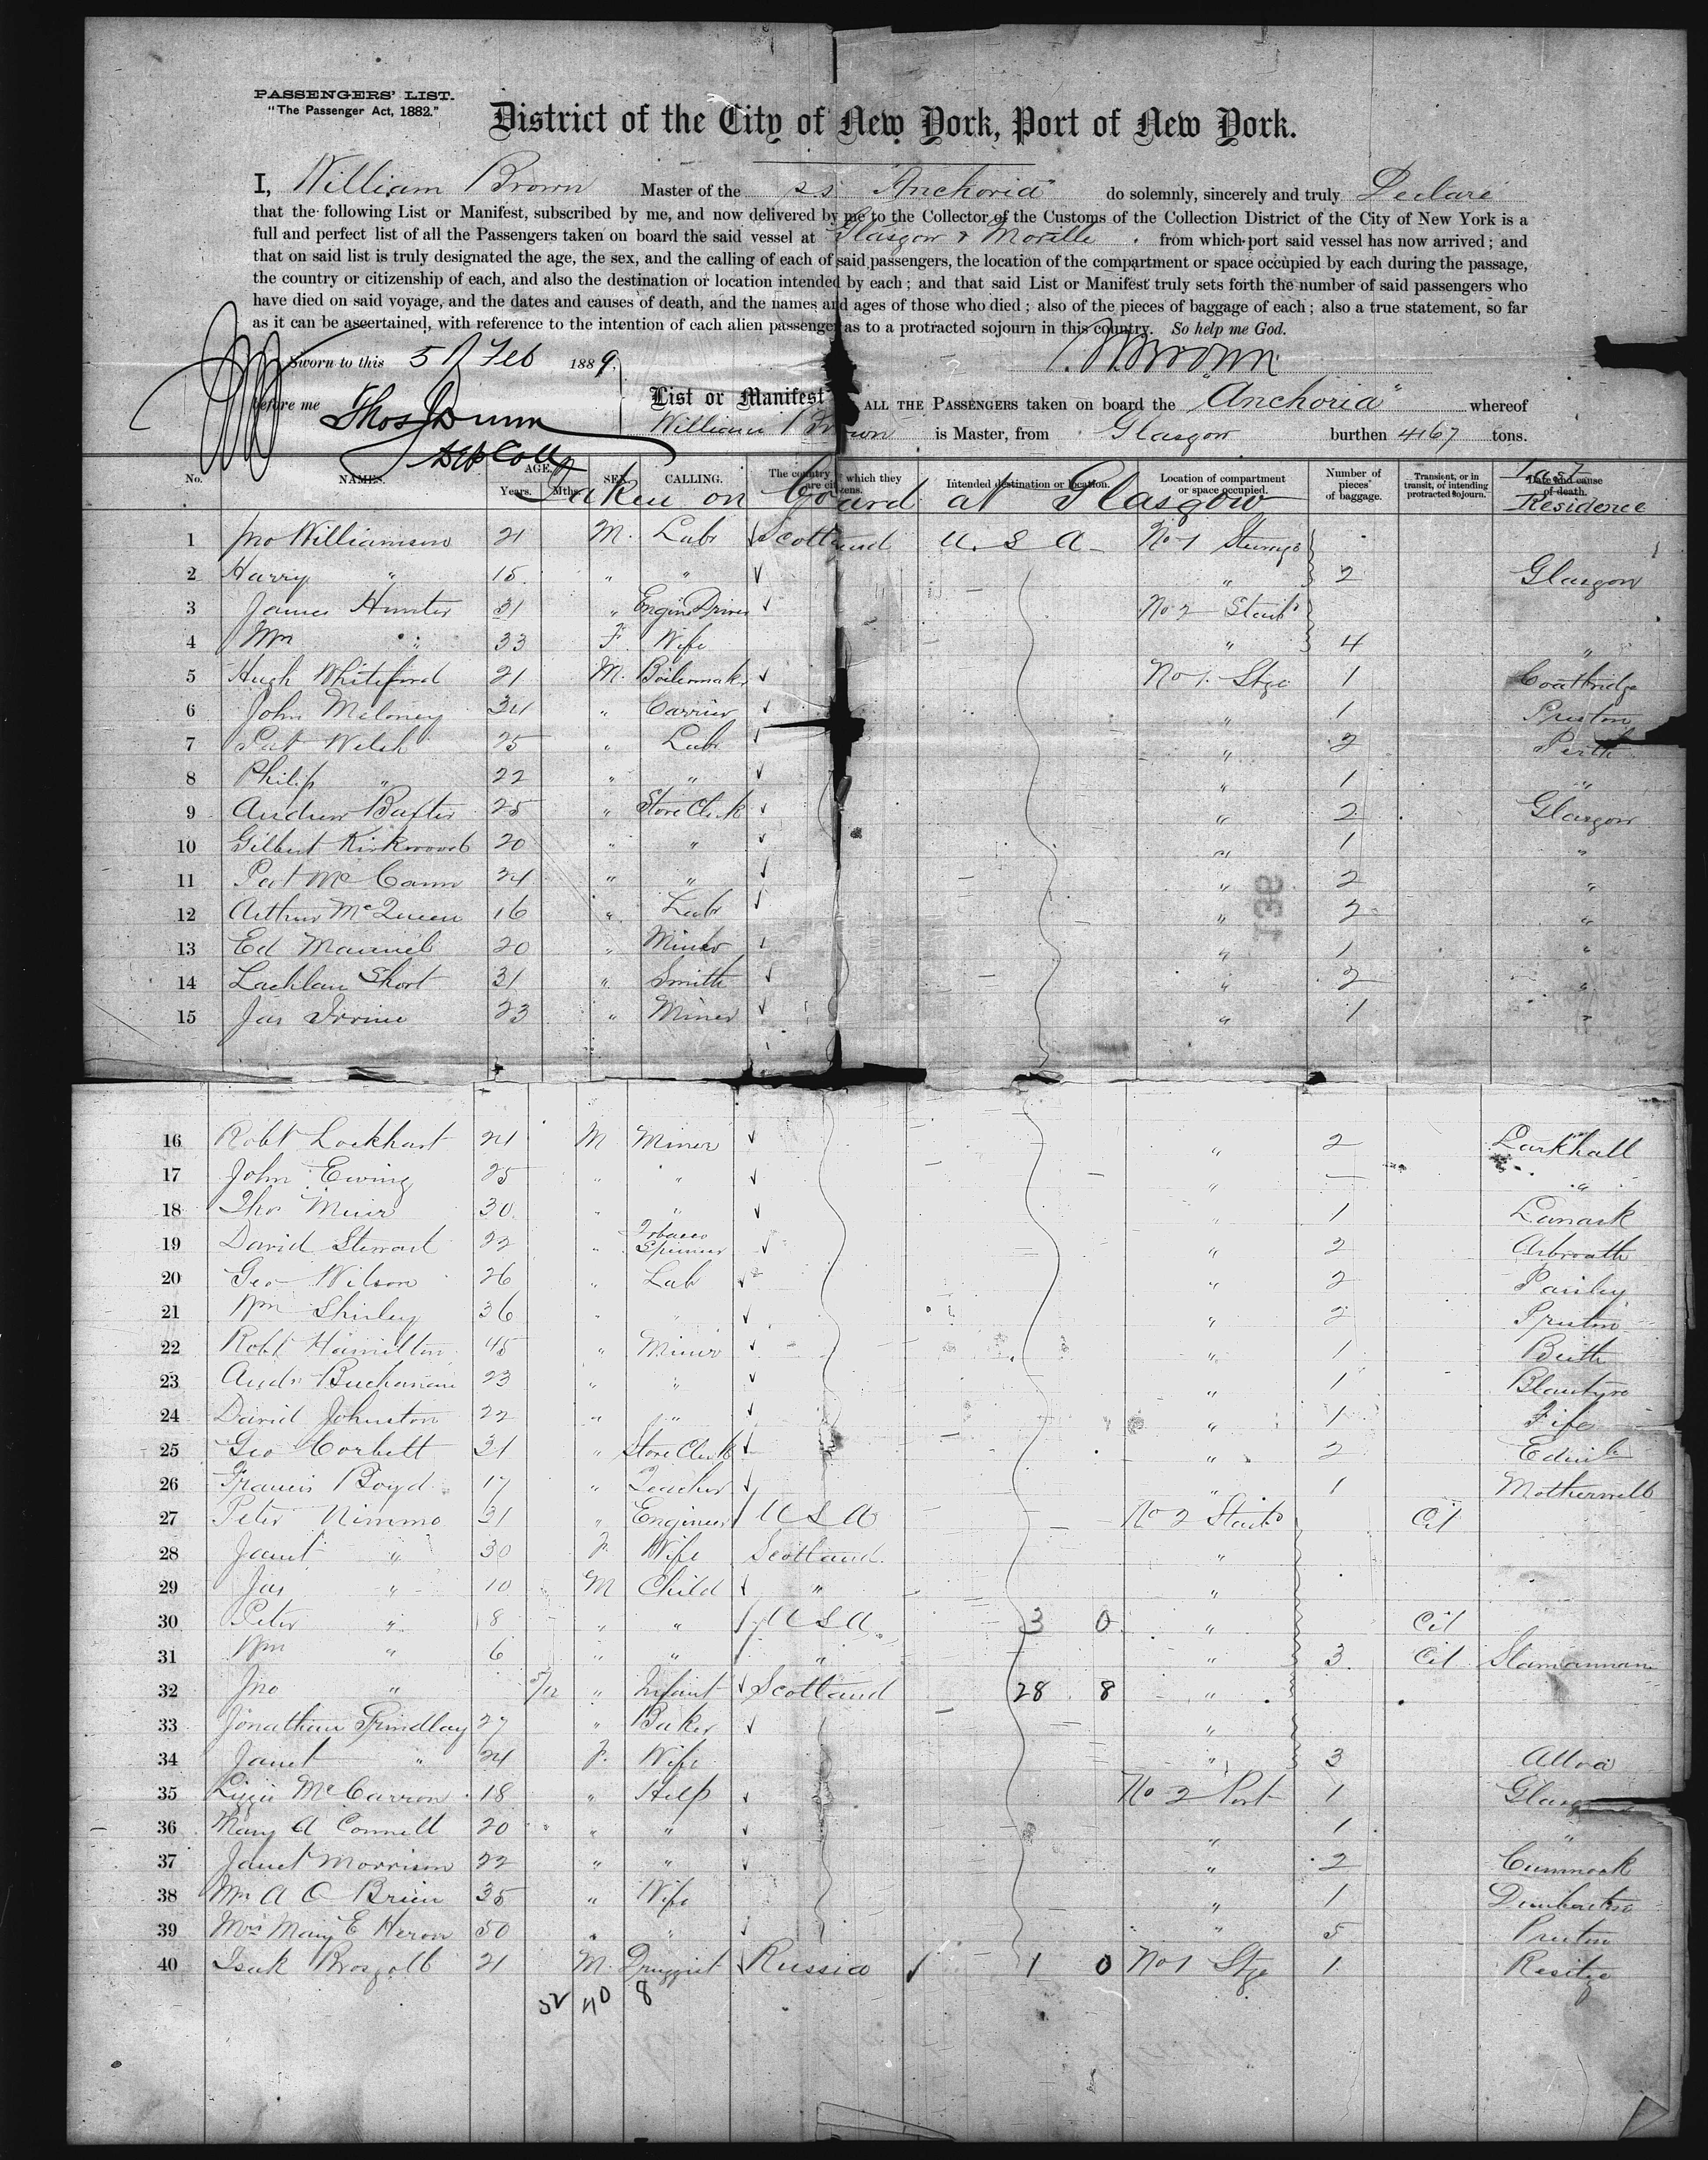 PASSENGERS' LIST.
"The Passenger Act, 1882."
District of the City of New York, Port of New York.
I, William Brown Master of the ss "Anchoria" do solemnly, sincerely and truly Declare
that the following List or Manifest, subscribed by me, and now delivered by me to the Collector of the Customs of the Collection District of the City of New York is a
full and perfect list of all the Passengers taken on board the said vessel at Glasgow & Moville from which port said vessel has now arrived; and
that on said list is truly designated the age, the sex, and the calling of each of said passengers, the location of the compartment or space occupied by each during the passage,
the country or citizenship of each, and also the destination or location intended by each; and that said List or Manifest truly sets forth the number of said passengers who
have died on said voyage, and the dates and causes of death, and the names and ages of those who died; also of the pieces of baggage of each; also a true statement, so far
as it can be ascertained, with reference to the intention of each alien passenger as to a protracted sojourn in this country. So help me God.
Sworn to this 5 Feb 1889 W Brown
before me Thos Dunn
Dep Coll
List or Manifest ALL THE PASSENGERS taken on board the "Anchoria" whereof
William Brown is Master, from Glasgow burthen 4167 tons.
No. NAMES. AGE. Years. Mths. SEX. CALLING. The country of which they are citizens. Intended destination or location. Location of compartment or space occupied. Number of pieces of baggage. Transient, or in transit, or intending protracted sojourn. Date and cause of death. Last Residence
Taken on board at Glasgow
1 Jno Williamson 21 M. Labr Scotland U.S.A. No 1 Steerage
2 Harry " 15 " " " 2 Glasgow
3 James Hunter 31 " Engine Driver No 2 Starb
4 Mrs " 33 F. Wife " 4 "
5 Hugh Whiteford 21 M. Boilermaker No 1 Stge 1 Coatbridge
6 John Meloney 34 " Carrier " 1 Preston
7 Pat Welsh 25 " Labr " 2 Perth
8 Philip " 22 " " " 1 "
9 Andrew Baxter 25 " Store Clerk " 2 Glasgow
10 Gilbert Kirkwood 20 " " " 1 "
11 Pat McCann 24 " " " 2 "
12 Arthur McQueen 16 " Labr " 2 "
13 Ed 20 " Miner " 1 "
14 Lachlan Short 31 " Smith " 2 "
15 Jas Irvine 23 " Miner " 1 "
138
16 Robt Lockhart 21 M Miner " 2 Larkhall
17 John Ewing 25 " " " — "
18 Thos Muir 30 " " " 1 Lanark
19 David Stewart 22 " Tobacco Spinner " 2 Arbroath
20 Geo Wilson 26 " Lab " 2 Paisley
21 Wm Shirley 36 " " " 2 Preston
22 Robt Hamilton 45 " Miner " 1 Beith
23 Andw Buchanan 23 " " " 1 Blantyre
24 David Johnston 22 " " " 1 Fife
25 Geo Corbett 31 " Store Clerk " 2 Edinb
26 Francis Boyd 17 " Teacher " 1 Motherwell
27 Peter Nimmo 31 " Engineer U S A No 2 Starb Cit
28 Janet " 30 F. Wife Scotland "
29 Jas " 10 M Child " "
30 Peter " 8 " " U S A. 3 0 " Cit
31 Wm " 6 " " " " 3 Cit Slamannan
32 Jno " 5/12 " Infant Scotland 28 8 "
33 Jonathan Grindlay 27 " Baker "
34 Janet " 24 F. Wife " 3 Alloa
35 Lizzie McCarron 18 " Help No 2 Port 1 Glasgow
36 Mary A Connell 20 " " " 1 "
37 Janet Morrison 22 " " " 2 Cumnock
38 Mrs A O Brien 35 " Wife " 1 Dumbarton
39 Mrs Mary E Heron 50 " " " 5 Preston
40 Isak 21 M. Druggist Russia 1 0 No 1 Stge 1
32 40 8